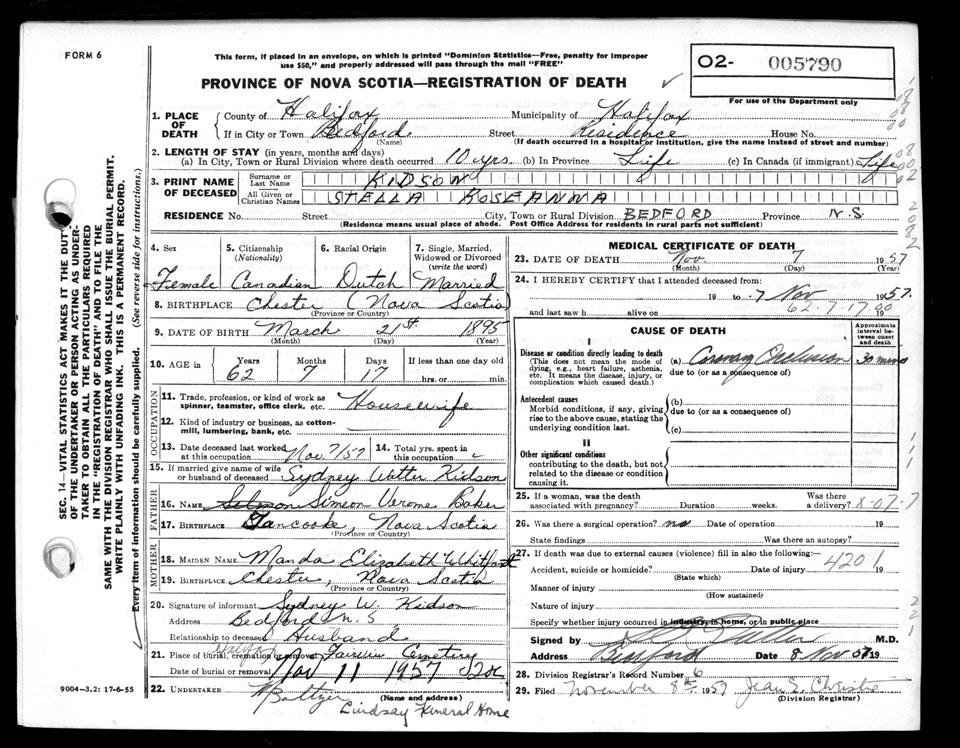 FORM 6
This form, if placed in an envelope, on which is printed "Dominion Statistics—Free, penalty for improper
use $50," and properly addressed will pass through the mail "FREE"
PROVINCE OF NOVA SCOTIA—REGISTRATION OF DEATH ✓
02- 005790
For use of the Department only
1. PLACE OF DEATH County of Halifax Municipality of Halifax
If in City or Town Bedford Street Residence House No.
(Name) (If death occurred in a hospital or institution, give the name instead of street and number)
2. LENGTH OF STAY (in years, months and days)
(a) In City, Town or Rural Division where death occurred 10 yrs. (b) In Province Life (c) In Canada (if immigrant) Life
3. PRINT NAME OF DECEASED Surname or Last Name KIDSON
All Given or Christian Names STELLA ROSEANNA
RESIDENCE No. Street City, Town or Rural Division BEDFORD Province N.S.
(Residence means usual place of abode. Post Office Address for residents in rural parts not sufficient)
4. Sex 5. Citizenship (Nationality) 6. Racial Origin 7. Single, Married, Widowed or Divorced (write the word)
Female Canadian Dutch Married
8. BIRTHPLACE Chester (Nova Scotia)
(Province or Country)
9. DATE OF BIRTH March 21st 1895
(Month) (Day) (Year)
10. AGE in Years Months Days If less than one day old
62 7 17 hrs. or min.
OCCUPATION
11. Trade, profession, or kind of work as spinner, teamster, office clerk, etc. Housewife
12. Kind of industry or business, as cotton-mill, lumbering, bank, etc.
13. Date deceased last worked at this occupation Nov. 7/57 14. Total yrs. spent in this occupation
15. If married give name of wife or husband of deceased Sydney Walter Kidson
FATHER
16. NAME Simeon Verome Baker
17. BIRTHPLACE Tancook, Nova Scotia
(Province or Country)
MOTHER
18. MAIDEN NAME Manda Elizabeth Whitford
19. BIRTHPLACE Chester, Nova Scotia
(Province or Country)
20. Signature of informant Sydney W. Kidson
Address Bedford N.S.
Relationship to deceased Husband
21. Place of burial, cremation or removal Halifax Fairview Cemetery
Date of burial or removal Nov 11 1957
22. UNDERTAKER Baltzer
(Name and address)
Lindsay Funeral Home
MEDICAL CERTIFICATE OF DEATH
23. DATE OF DEATH Nov. 7 1957
(Month) (Day) (Year)
24. I HEREBY CERTIFY that I attended deceased from:
19 to 7 Nov 1957.
and last saw h alive on 62-7-17.00 19
CAUSE OF DEATH
Approximate interval between onset and death
I
Disease or condition directly leading to death
(This does not mean the mode of dying, e.g., heart failure, asthenia, etc. It means the disease, injury, or complication which caused death.)
(a) Coronary Occlusion 30 mins
due to (or as a consequence of)
Antecedent causes
Morbid conditions, if any, giving rise to the above cause, stating the underlying condition last.
(b)
due to (or as a consequence of)
(c)
II
Other significant conditions
contributing to the death, but not related to the disease or condition causing it.
25. If a woman, was the death associated with pregnancy? Duration weeks. Was there a delivery? X-07-7
26. Was there a surgical operation? no Date of operation 19
State findings Was there an autopsy?
27. If death was due to external causes (violence) fill in also the following:
Accident, suicide or homicide? Date of injury 19
(State which) 4201
Manner of injury
(How sustained)
Nature of injury
Specify whether injury occurred in industry, in home, or in public place
Signed by M.D.
Address Bedford Date 8 Nov 57 19
28. Division Registrar's Record Number 6
29. Filed November 8th 1957 Jean E. Christie
(Division Registrar)
9004—3.2: 17-6-55
SEC. 14—VITAL STATISTICS ACT MAKES IT THE DUTY
OF THE UNDERTAKER OR PERSON ACTING AS UNDER-
TAKER TO OBTAIN ALL THE PARTICULARS REQUIRED
IN THE "REGISTRATION OF DEATH" AND TO FILE THE
SAME WITH THE DIVISION REGISTRAR WHO SHALL ISSUE THE BURIAL PERMIT.
WRITE PLAINLY WITH UNFADING INK. THIS IS A PERMANENT RECORD.
Every item of information should be carefully supplied. (See reverse side for instructions.)